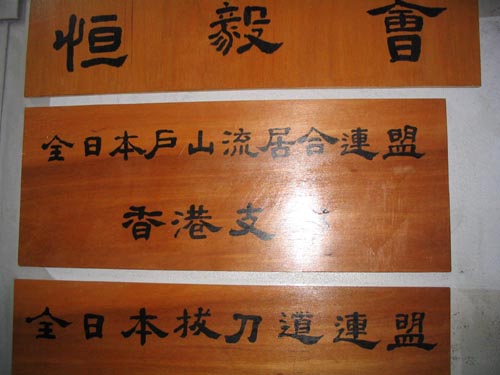 恒毅會
全日本戶山流居合連盟
香港支
全日本拔刀道連盟